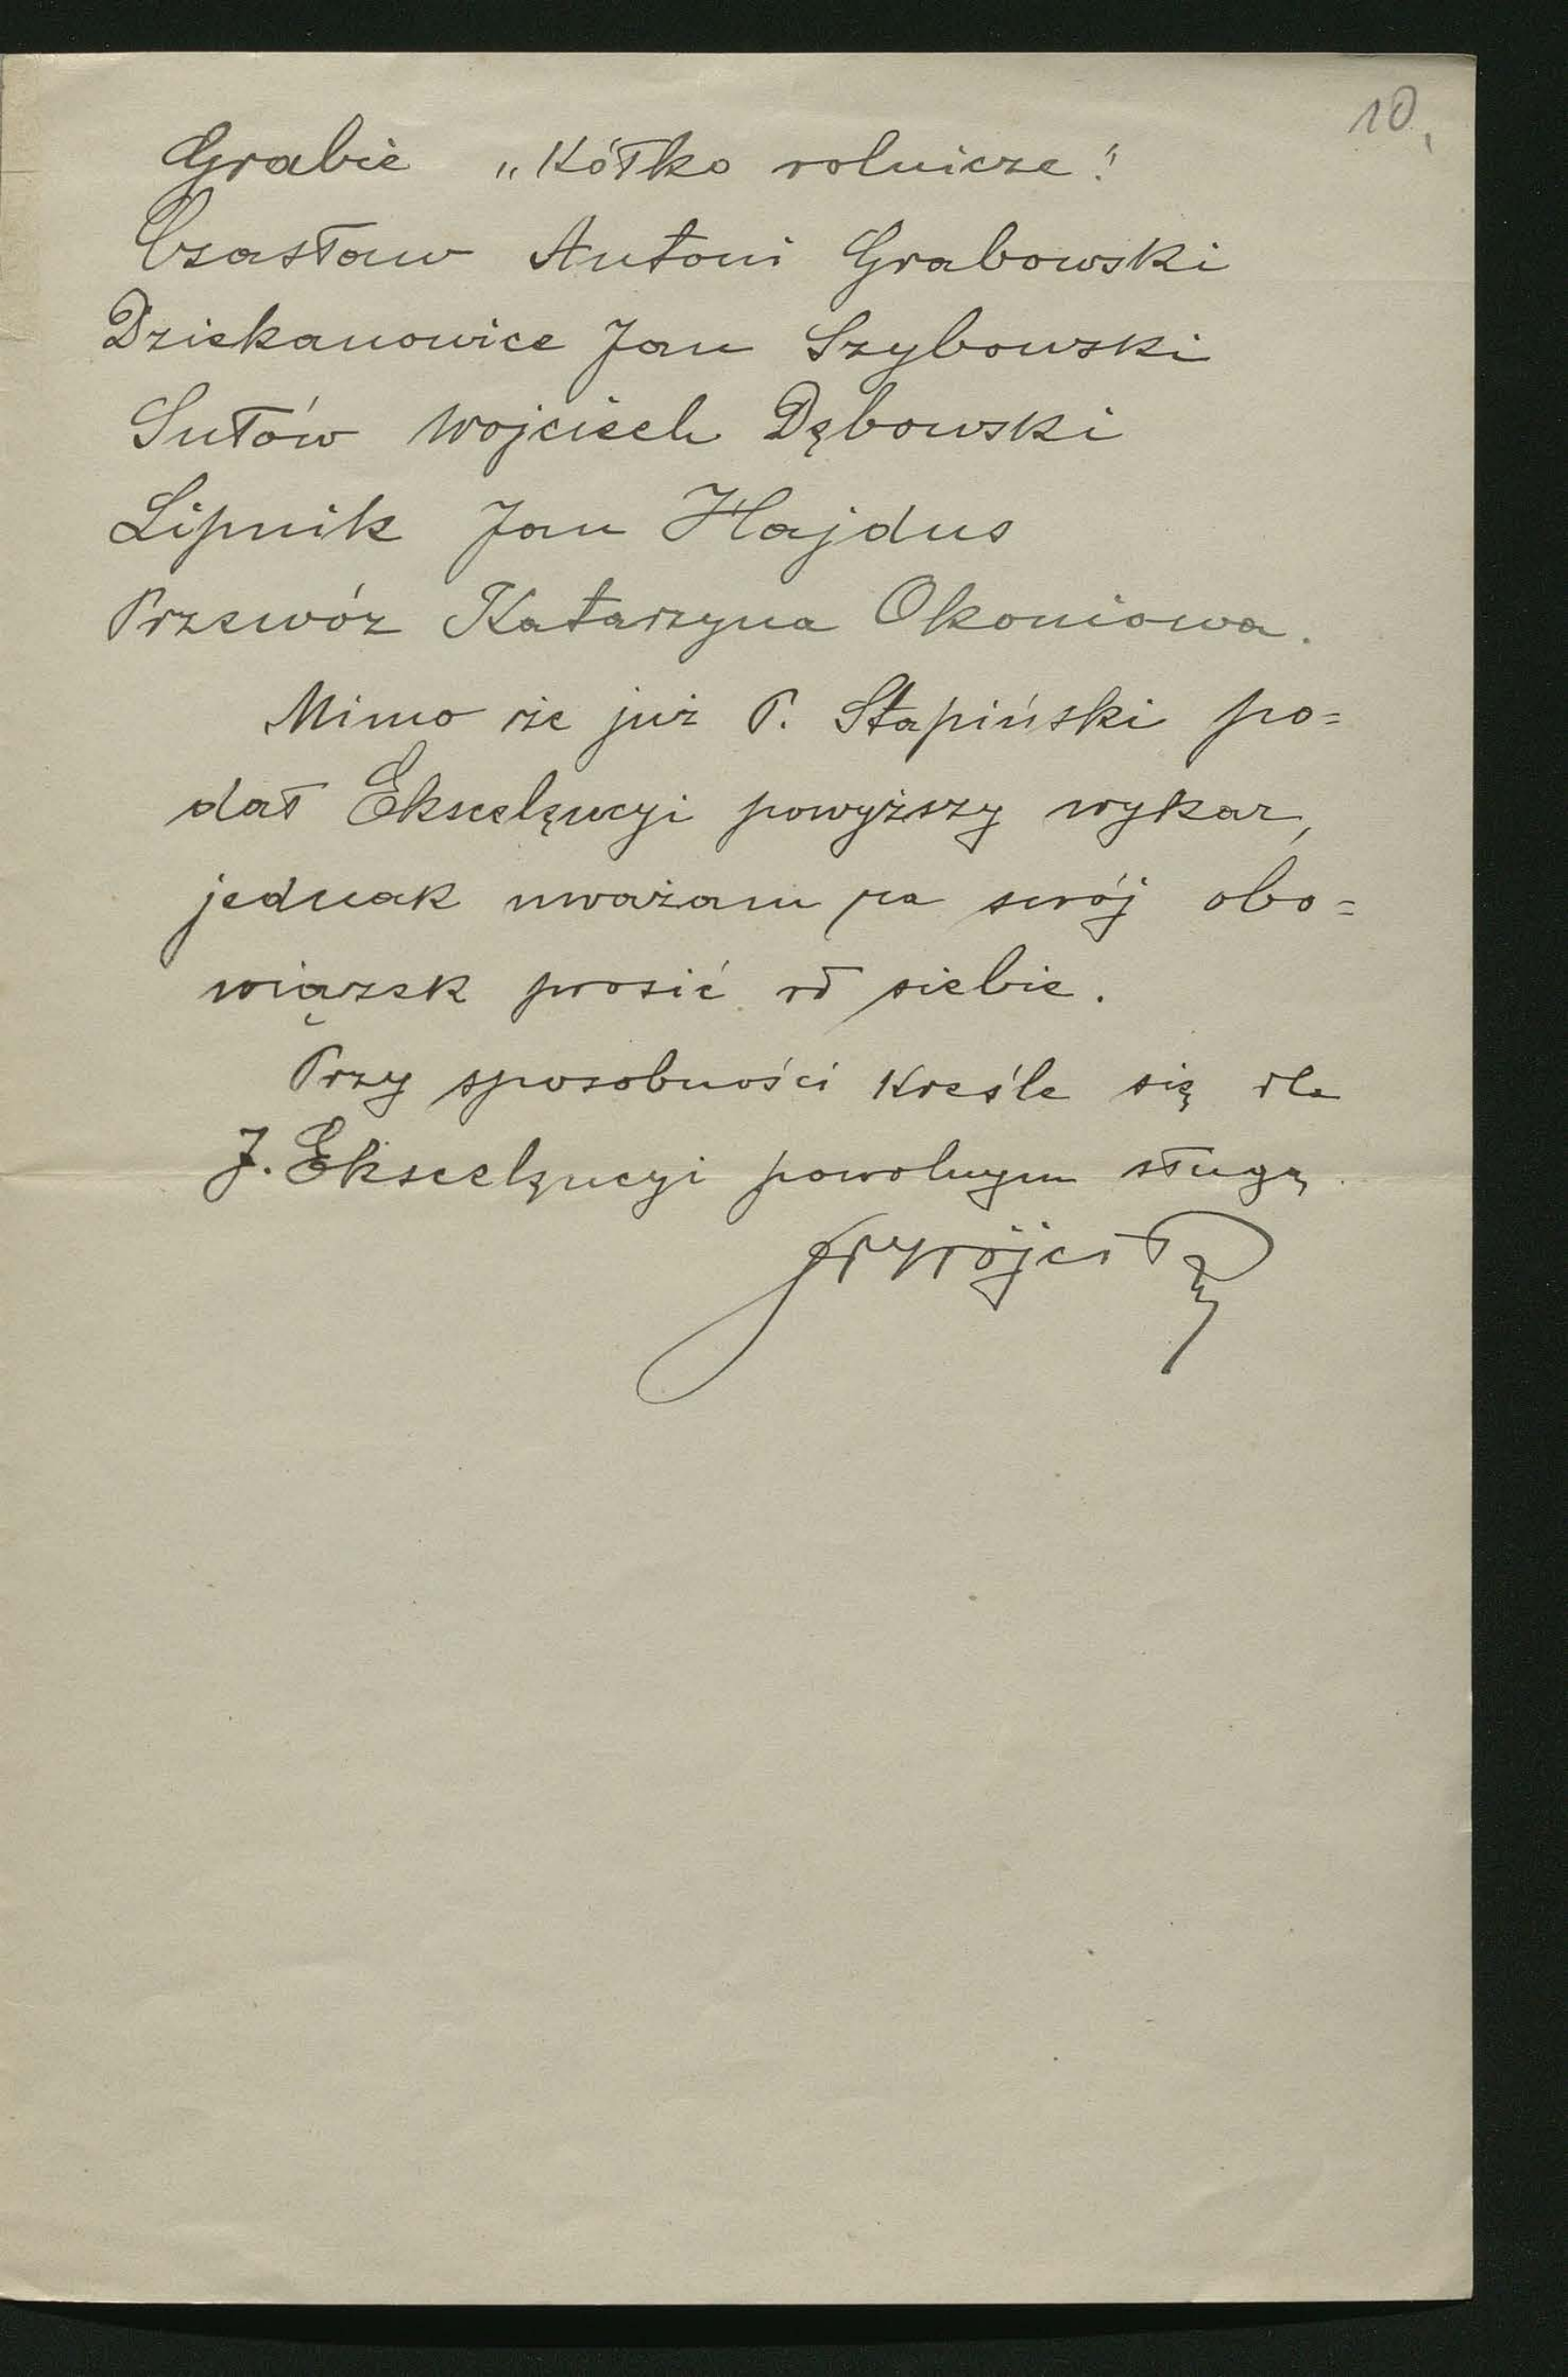 10.
Grabie „Kółko rolnicze"
Czasław Antoni Grabowski
Dziekanowice Jan Szybowski
Sułów Wojciech Dębowski
Lipnik Jan Hajdus
Przewóz Katarzyna Okoniowa.
Mimo że już P. Stapiński po=
dał Ekscelęncyi powyższy wykaz,
jednak uważam za swój obo=
wiązek prosić od siebie.
Przy sposobności kreśle się dla
J. Ekscelęncyi powolnym sługą
FrWójcik